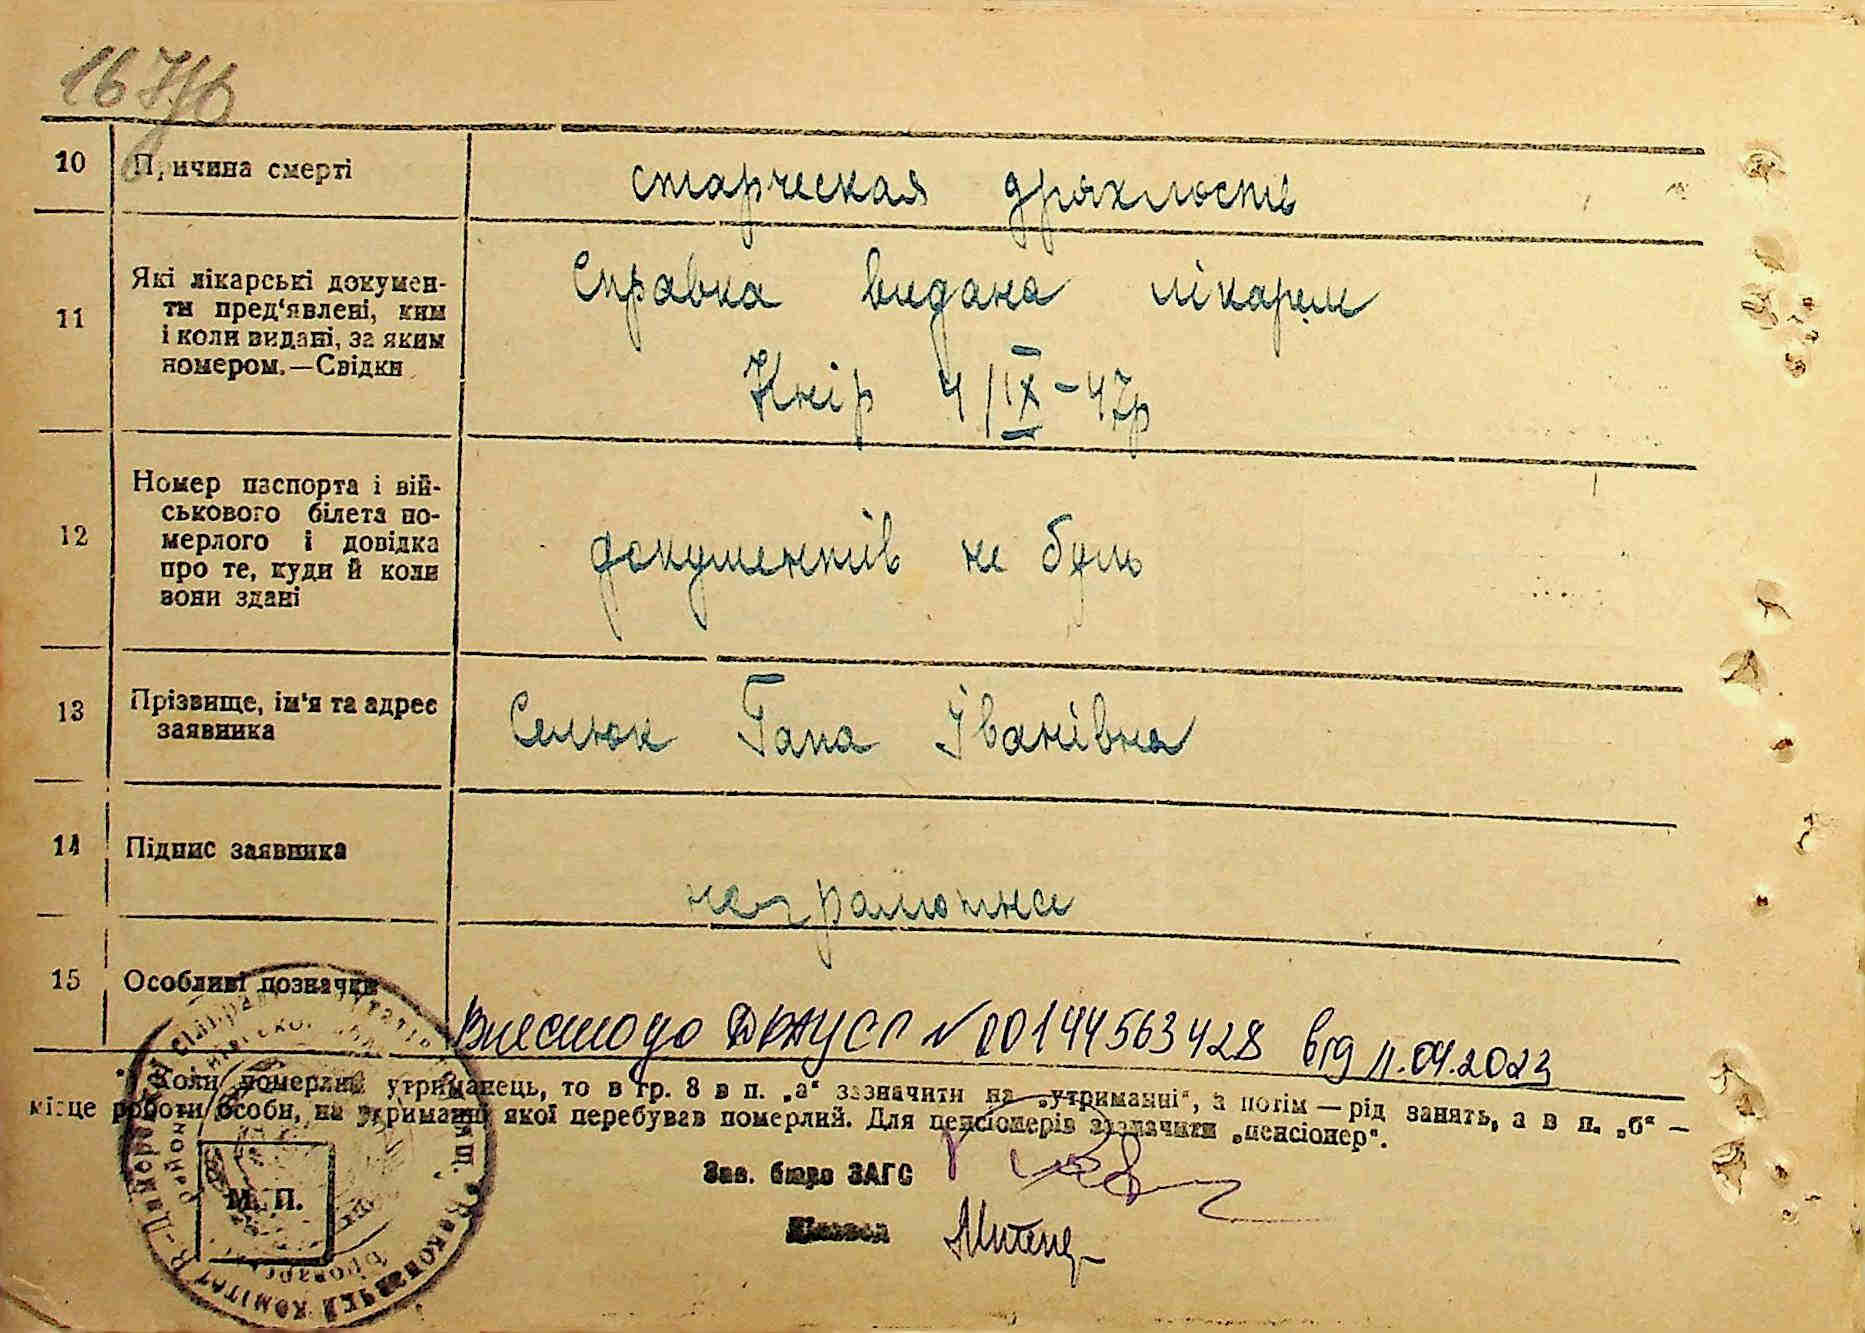 10 Причина смерті старческая дряхлость
11 Які лікарські докумен-
ти пред‘явлені, ким
і коли видані, за яким
номером.—Свідки
Справка видана лікарем
Кнір 4/IX-47р
12 Номер паспорта і вій-
ськового білета по-
мерлого і довідка
про те, куди й коли
вони здані
документів не було
13 Прізвище, ім‘я та адрес
заявника
Селюк Гапа Іванівна
14 Підпис заявника
неграмотна
15 Особливі позначки
Внесто до ДРАЦСГ № 00144563428 від 11.04.2023
*) Коли померлий утриманець, то в гр. 8 в п. „а“ зазначити на „утриманні“, а потім — рід занять, а в п. „б“ —
місце роботи особи, на утриманні якої перебував померлий. Для пенсіонерів зазначити „пенсіонер“.
Зав. бюро ЗАГС
М. П.
Діловод